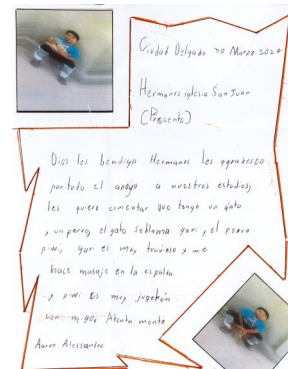 Ciudad Delgado 20 Marzo 2024
Hermanos iglesia San Juan
(Presente)
Dios les bendiga Hermanos les agradesco
por todo el apoyo a nuestros estudios,
les quiero comentar que tengo un gato
y un perro, el gato se llama gari, y el perro
piwi, gari es muy travioso y me
hace masaje en la espalda
y piwi es muy jugetón
con migo, Atenta mente
Aaron Alessandro